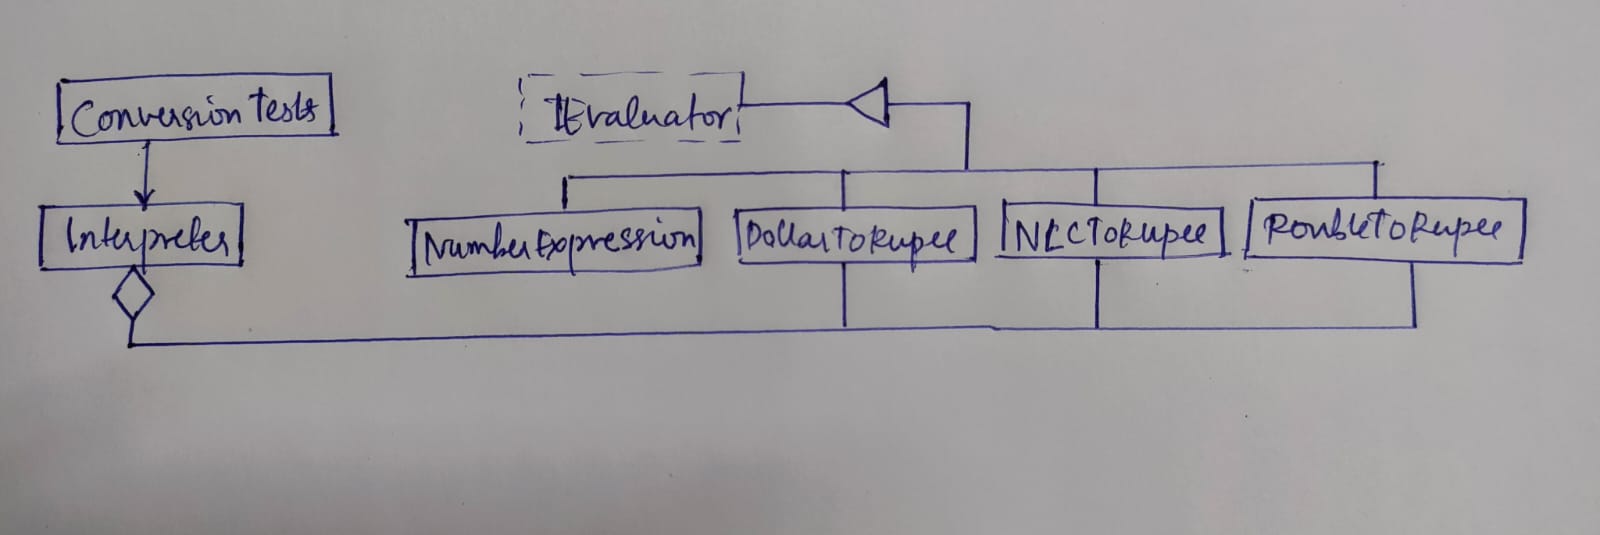 Conversion Tests
IEvaluator
Interpreter
NumberExpression
DollarToRupee
NLCToRupee
RoubleToRupee